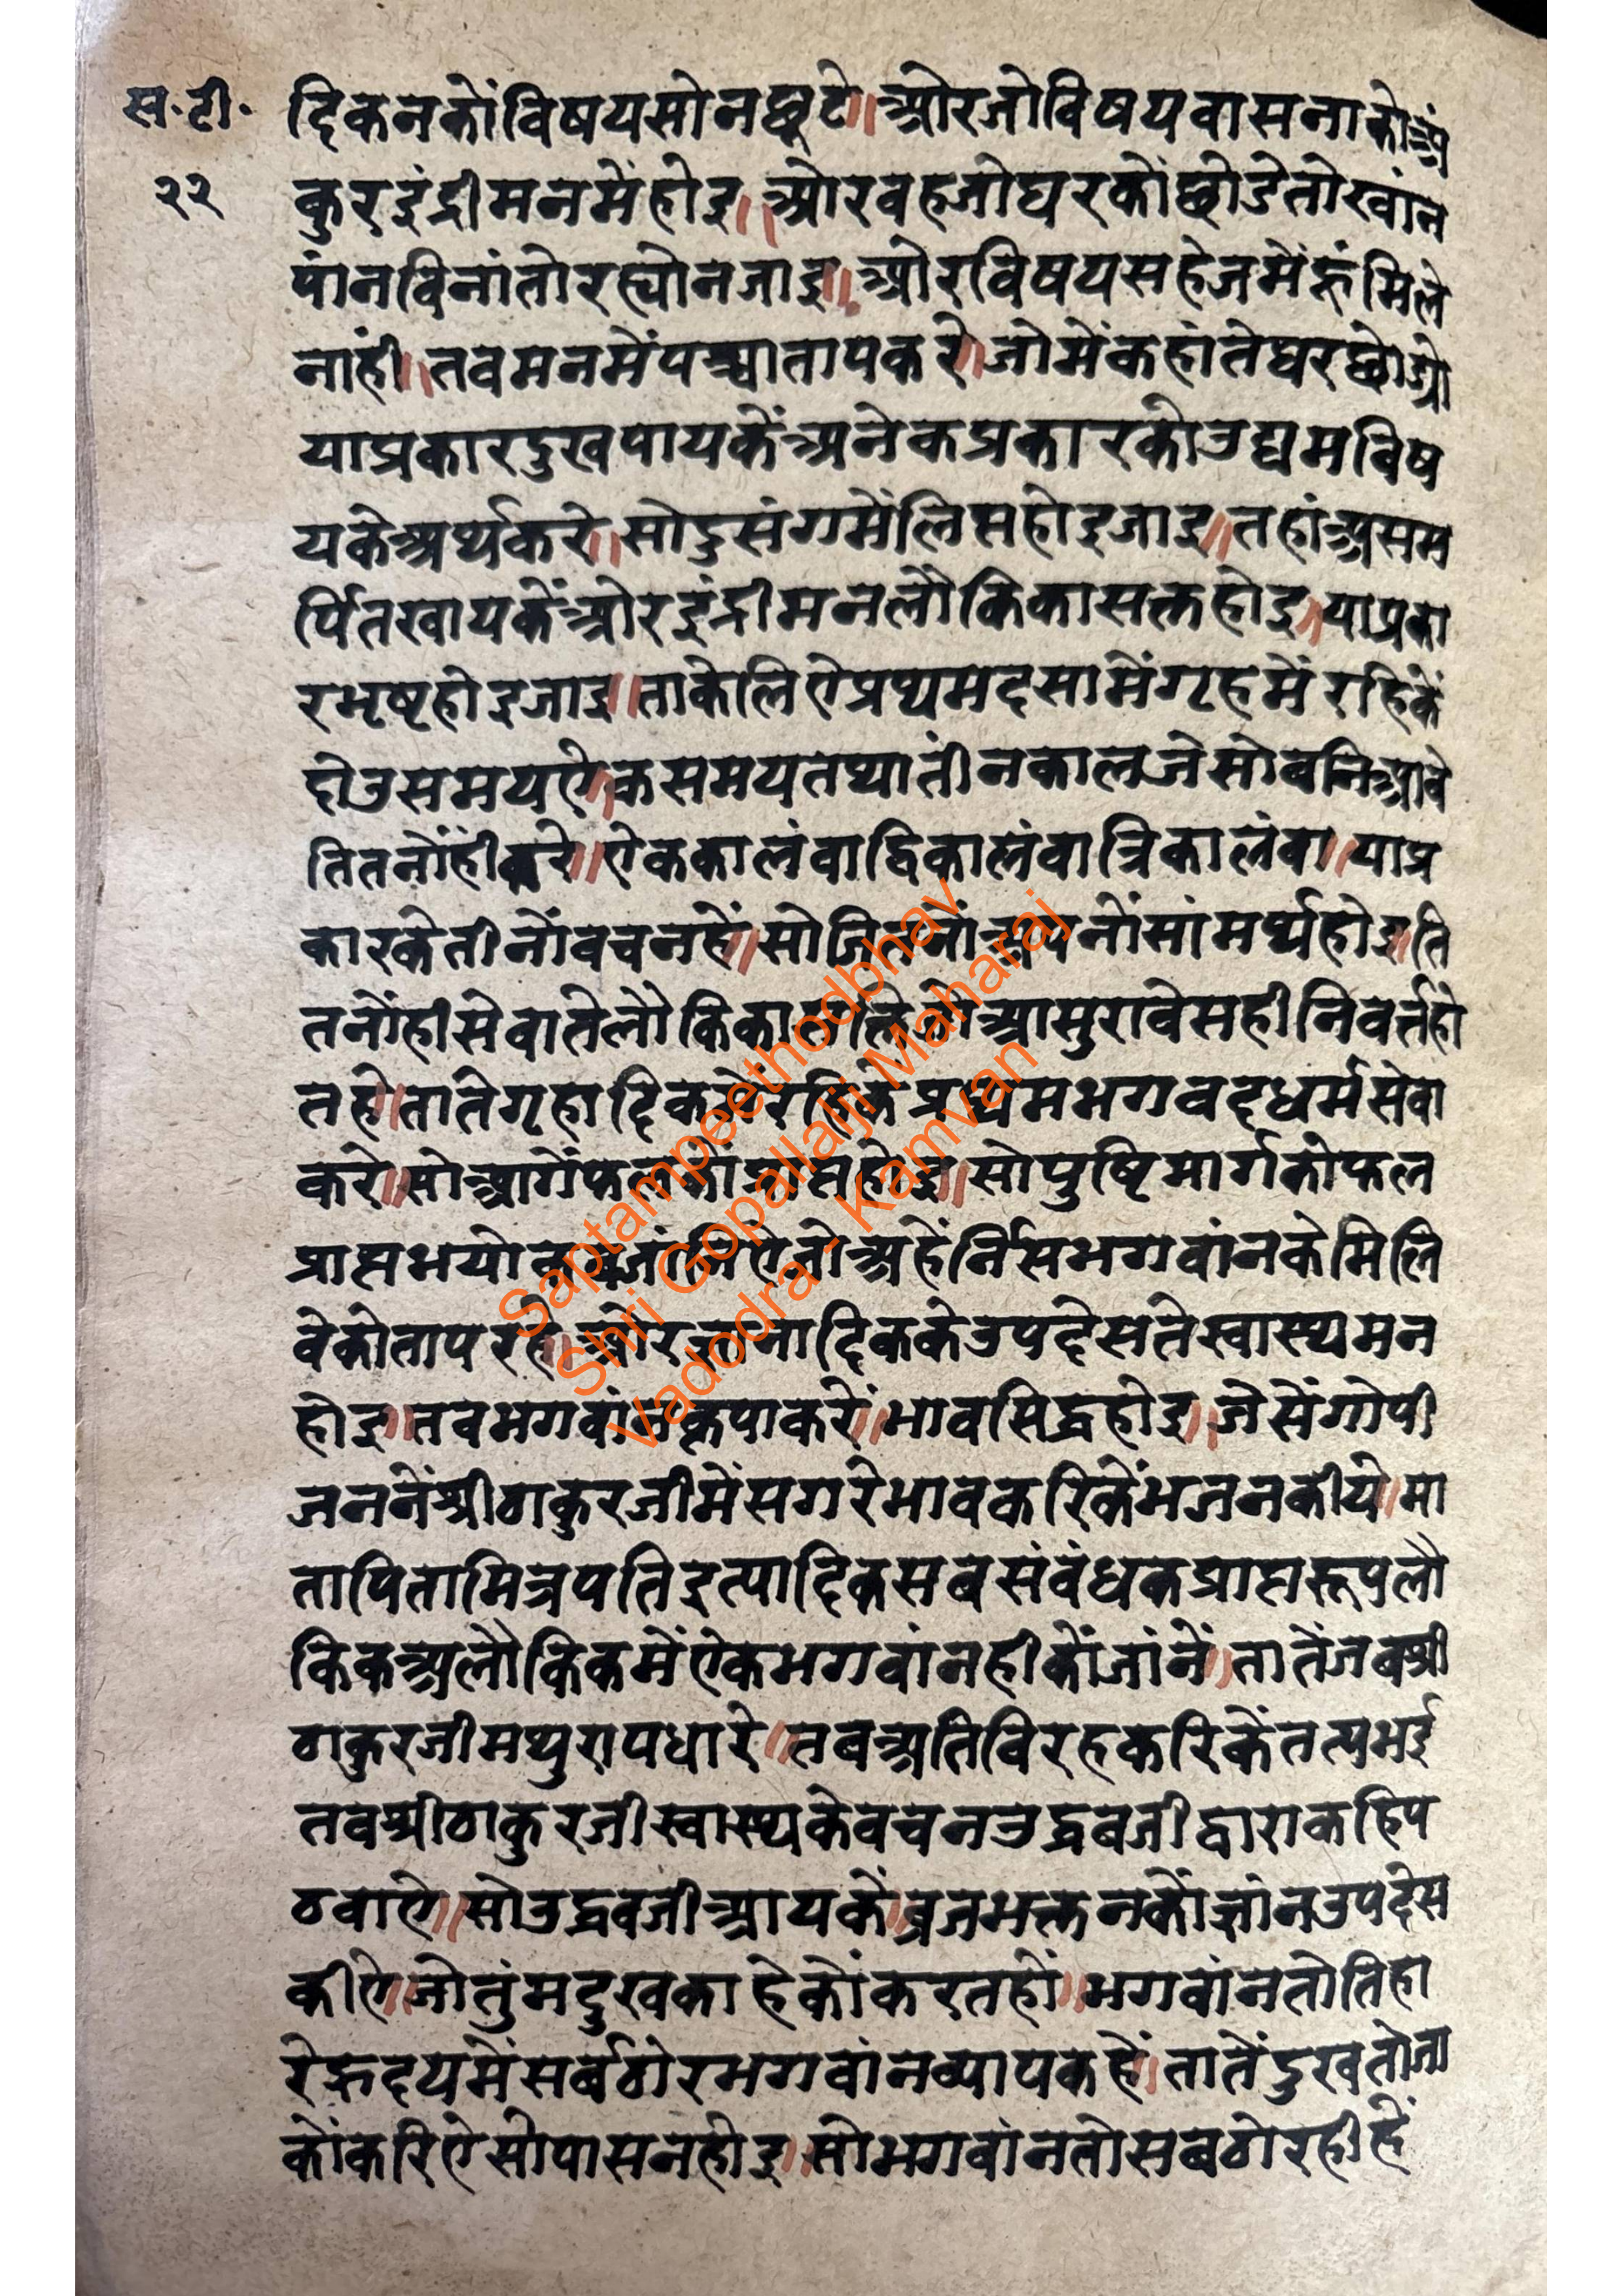 स.टी.
२२
दिकनकोंविषयसोनछूटे॥ओरजोविषयवासनाकोअं
कुरइंद्रीमनमेंहोइ॥ओरवहजोघरकोंछोडेतोखांन
पांनविनांतोरह्योनजाइ॥ओरविषयसहेजमेंहूंमिले
नांही॥तवमनमेंपश्चातापकरे॥जोमेंकहांतेघरछोड्यो
याप्रकारदुखपायकेंअनेकप्रकारकोउद्यमविष
यकेअर्थकरे॥सोदुसंगमेंलिप्तहोइजाइ॥तहांअसम
र्पितखायकेंओरइंद्रीमनलौकिकासक्तहोइ॥याप्रका
रभृष्टहोइजाइ॥ताकेलिऐप्रथमदसामेंगृहमेंरहिकें
दोउसमयऐ॥कसमयतथातीनकालजेसोवनिआवे
तितनोंहींकरे॥ऐककालंवाद्विकालंवात्रिकालंवा॥याप्र
कारकेतीनोंवचनहें॥सोजितनोंअपनोंसांमर्थ्यहोइ॥ति
तनोंहीसेवातेलौकिकासक्तिओआसुरावेसहीनिवर्त्तहो
तहे॥तातेगृहादिकमेंरहिकेप्रथमभगवद्धर्मसेवा
करे॥सोआगेंफलकोंप्राप्तहोइ॥सोपुष्टिमार्गकोफल
प्राप्तभयोकबजांनिऐजोअहेर्निसभगवांनकेमिलि
वेकोतापरहे॥ओरज्ञानादिककेउपदेसतेस्वास्थ्यमन
होइ॥तवभगवांनकृपाकरें॥भावसिद्धहोइ॥जेसेंगोपी
जननेंश्रीठाकुरजीमेंसगरेभावकरिकेंभजनकीये॥मा
तापितामित्रपतिइत्यादिकसबसंवंधकप्राप्तरूपलौ
किकअलौकिकमेंऐकभगवांनहीकोंजांनें॥तातेंजबश्री
ठाकुरजीमथुरापधारे॥तबअतिविरहकरिकेंतत्पुभई
तवश्रीठाकुरजीस्वास्थ्यकेवचनउद्धवजीद्वाराकहिप
ठवाऐ॥सोउद्धवजीआयकें॥व्रजभक्तनकोंज्ञांनउपदेस
कीऐ॥जोतुंमदुखकाहेकोंकरतहों॥भगवांनतोतिहा
रेह्रदयमेंसर्वठोरभगवांनव्यापकहें॥तातेंदुखतोता
कोंकरिऐसोपासनहोइ॥सोभगवांनतोसबठोरहीहें